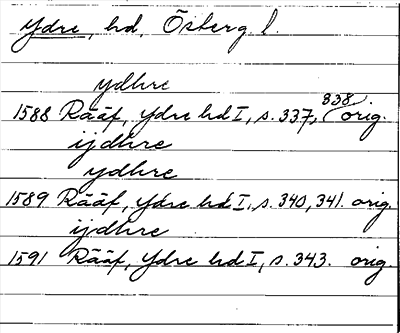 Ydre, hd, Österg. l.
ydhre
1588 Rääf, Ydre hd I, s. 337, 338. orig.
ijdhre
ydhre
1589 Rääf, Ydre hd I, s. 340, 341. orig.
ijdhre
1591 Rääf, Ydre hd I, s. 343. orig.